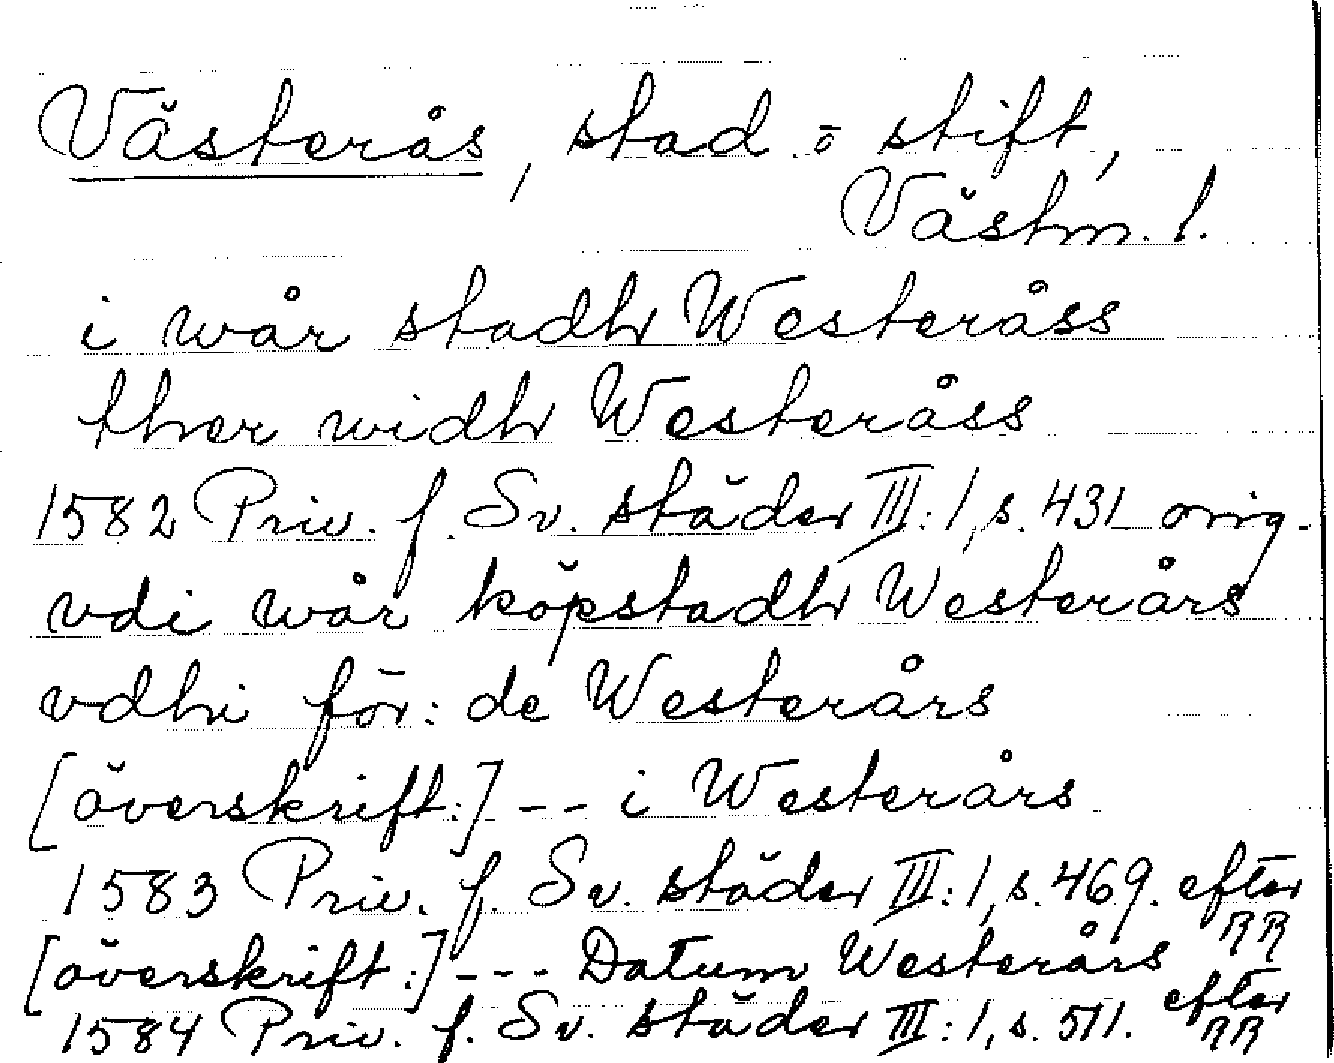 Västerås, stad o stift,
Västm. l.
i wår stadh Westeråss
ther widh Westeråss
1582 Priv. f. Sv. städer III:1, s. 431 orig.
vdi wår köpstadh Westerårs
vdhi för: de Westerårs
[överskrift:] -- i Westerårs
1583 Priv. f. Sv. städer III:1, s. 469. efter RR
[överskrift:] --- Datum Westerårs
1584 Priv. f. Sv. städer III:1, s. 511. efter RR